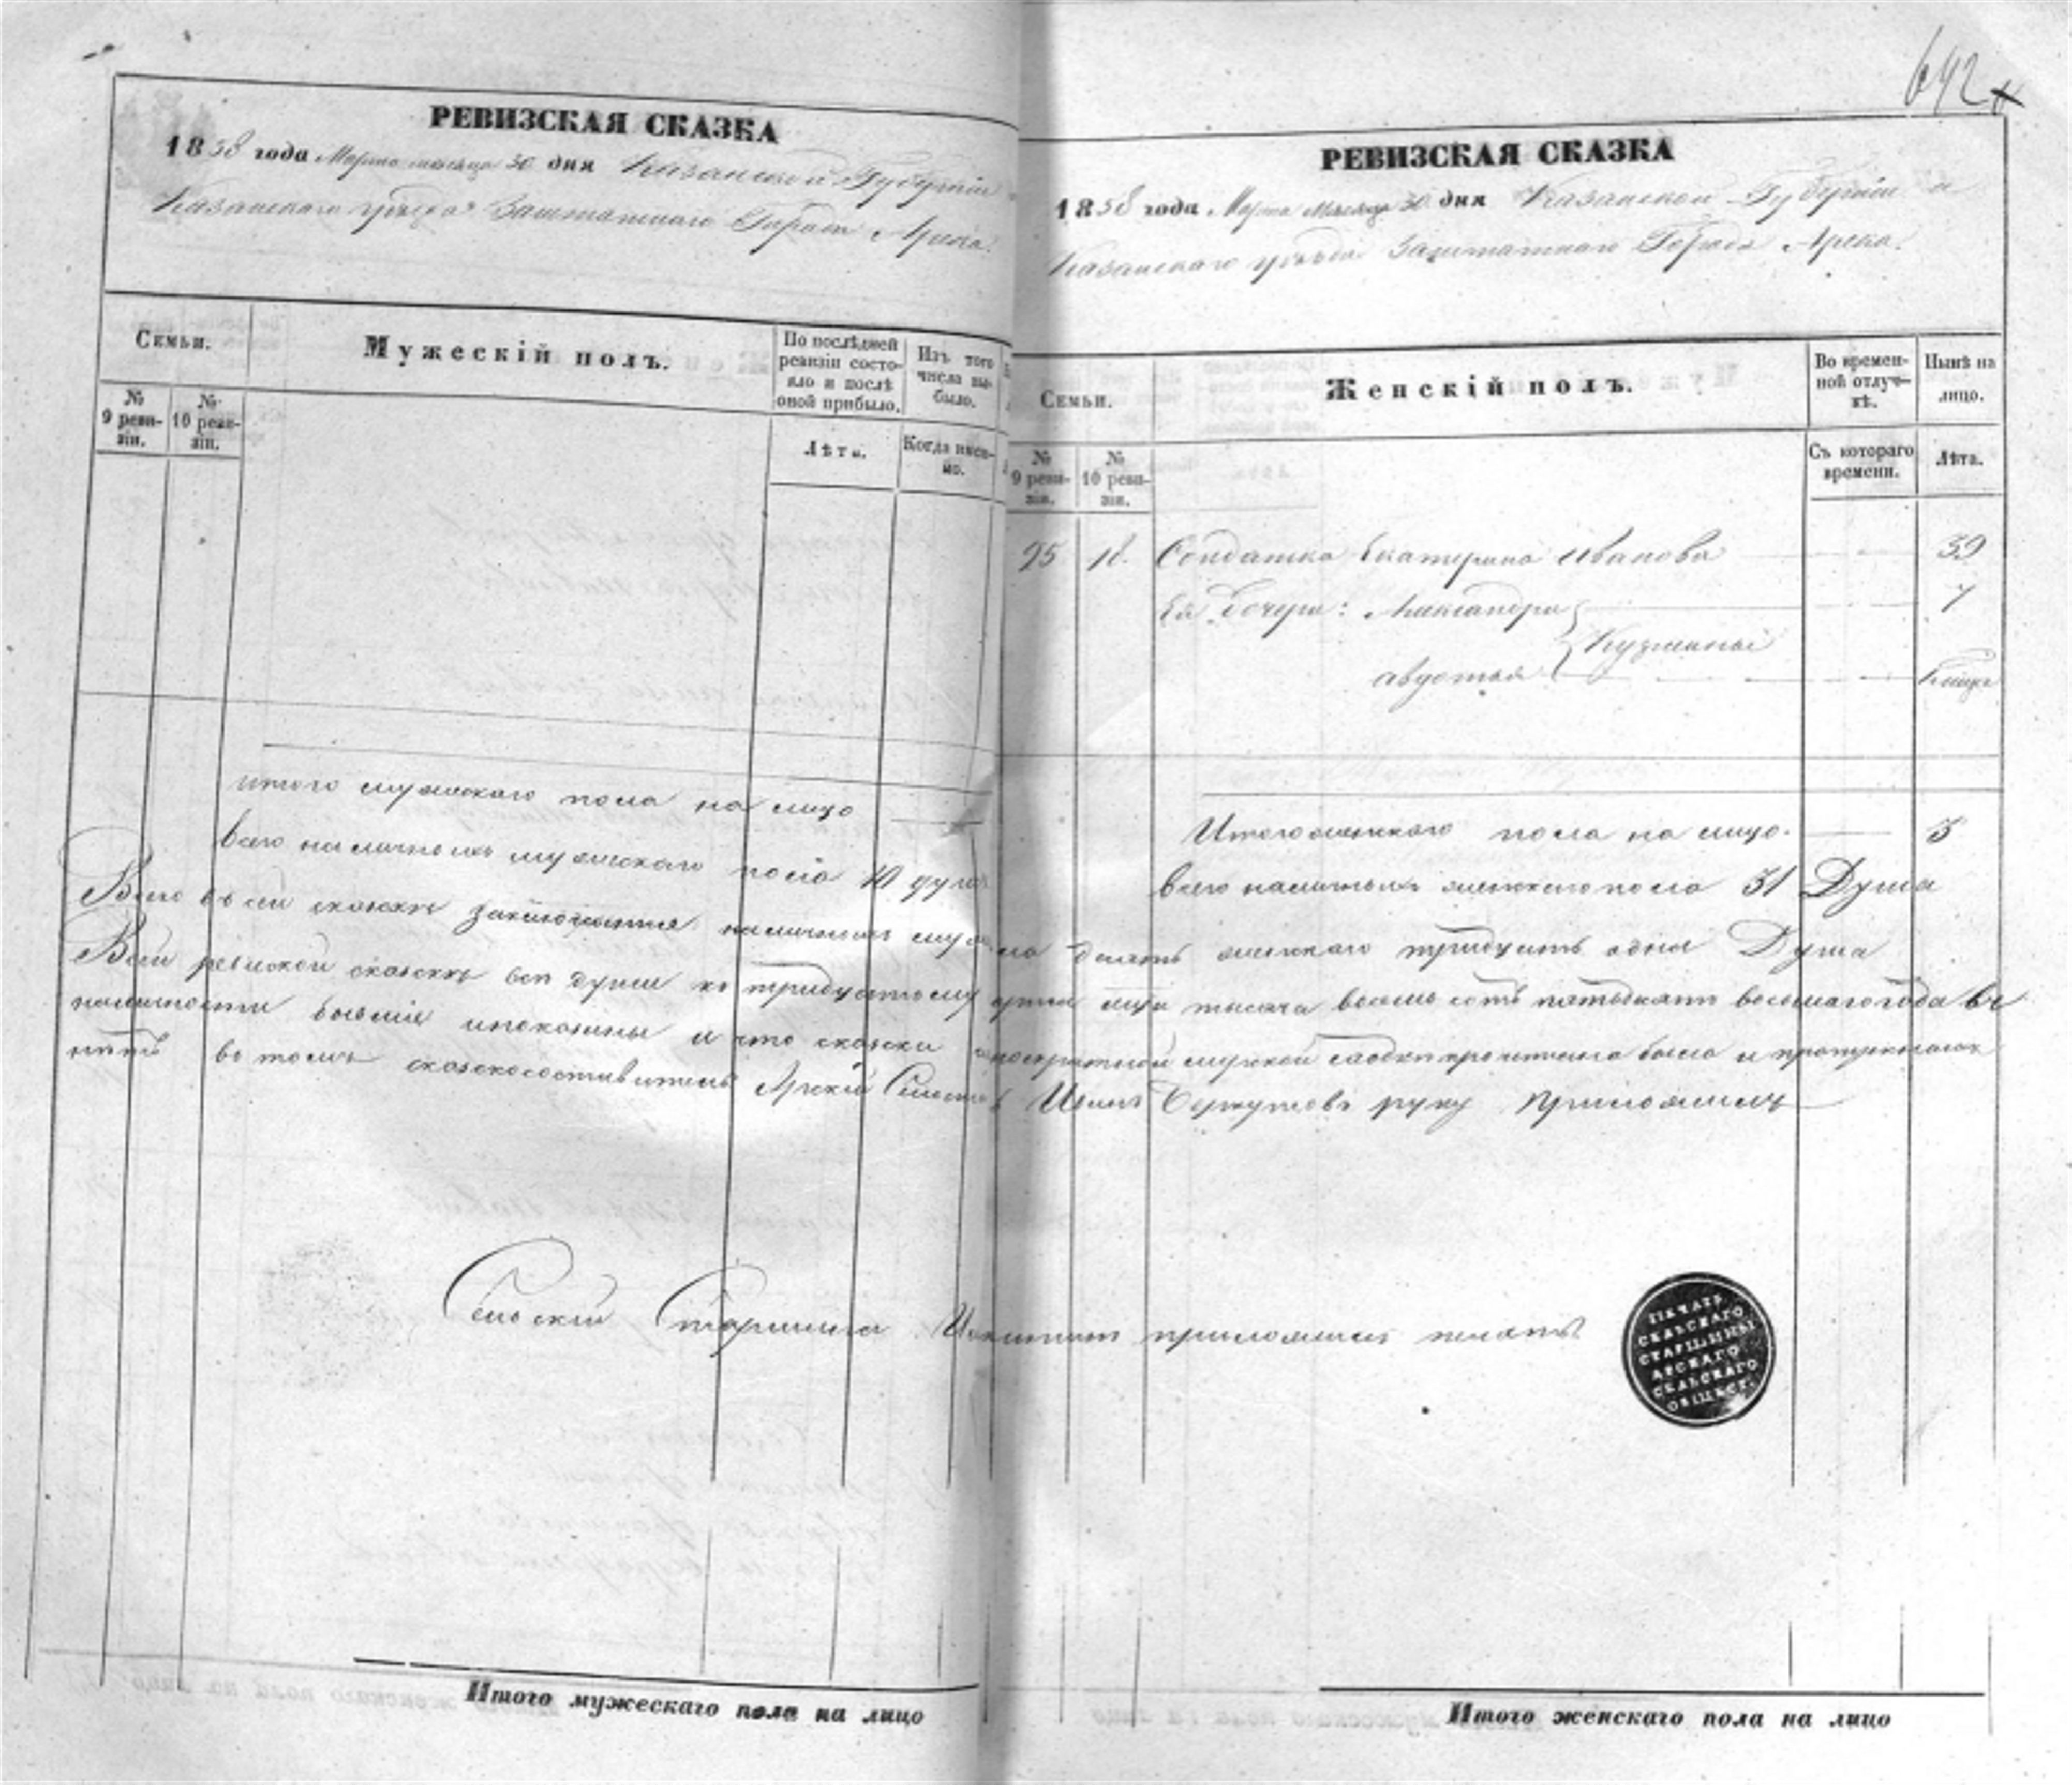 642
РЕВИЗСКАЯ СКАЗКА
1858 года Марта месяца 30 дня Казанской Губернiи
Казанскаго уѣзда Заштатнаго Города Арска.
Семьи.
Мужескiй полъ.
По послѣдней ревизiи состояло и послѣ оной прибыло.
Изъ того числа выбыло.
№ 9 ревизiи.
№ 10 ревизiи.
Лѣта.
Когда именно.
итого мужескаго пола на лицо
всего наличныхъ мужескаго пола 10 душъ
РЕВИЗСКАЯ СКАЗКА
1858 года Марта Месяца 30 дня Казанской Губернiи и
Казанскаго уѣзда Заштатнаго Города Арска.
Семьи.
Женскiй полъ.
Во временной отлучкѣ.
Нынѣ на лицо.
№ 9 ревизiи.
№ 10 ревизiи.
Съ котораго времени.
Лѣта.
95 18. Солдатка Екатерина Иванова 39
Ея Дочери: Александра 7
Кузмины
авдотья
Итого женскаго пола на лицо. 3
всего наличныхъ женскаго пола 31 Душа
Всего въ сей сказкѣ заключается наличныхъ десять женскаго тридцать одна Душа
Всей ревиской сказкѣ все души къ тридцатому тысяча восемь сотъ пятьдесятъ восьмаго года въ
наличности бывшiе и показаны и что сказки мирской сходкѣ прочитана была и
нѣтъ въ томъ сказкосоставитель Арскiй руку приложилъ
Сельскiй Старшина приложилъ печать
ПЕЧАТЬ
СЕЛЬСКАГО
СТАРШИНЫ
АРСКАГО
СЕЛЬСКАГО
ОБЩЕСТ.
Итого мужескаго пола на лицо
Итого женскаго пола на лицо